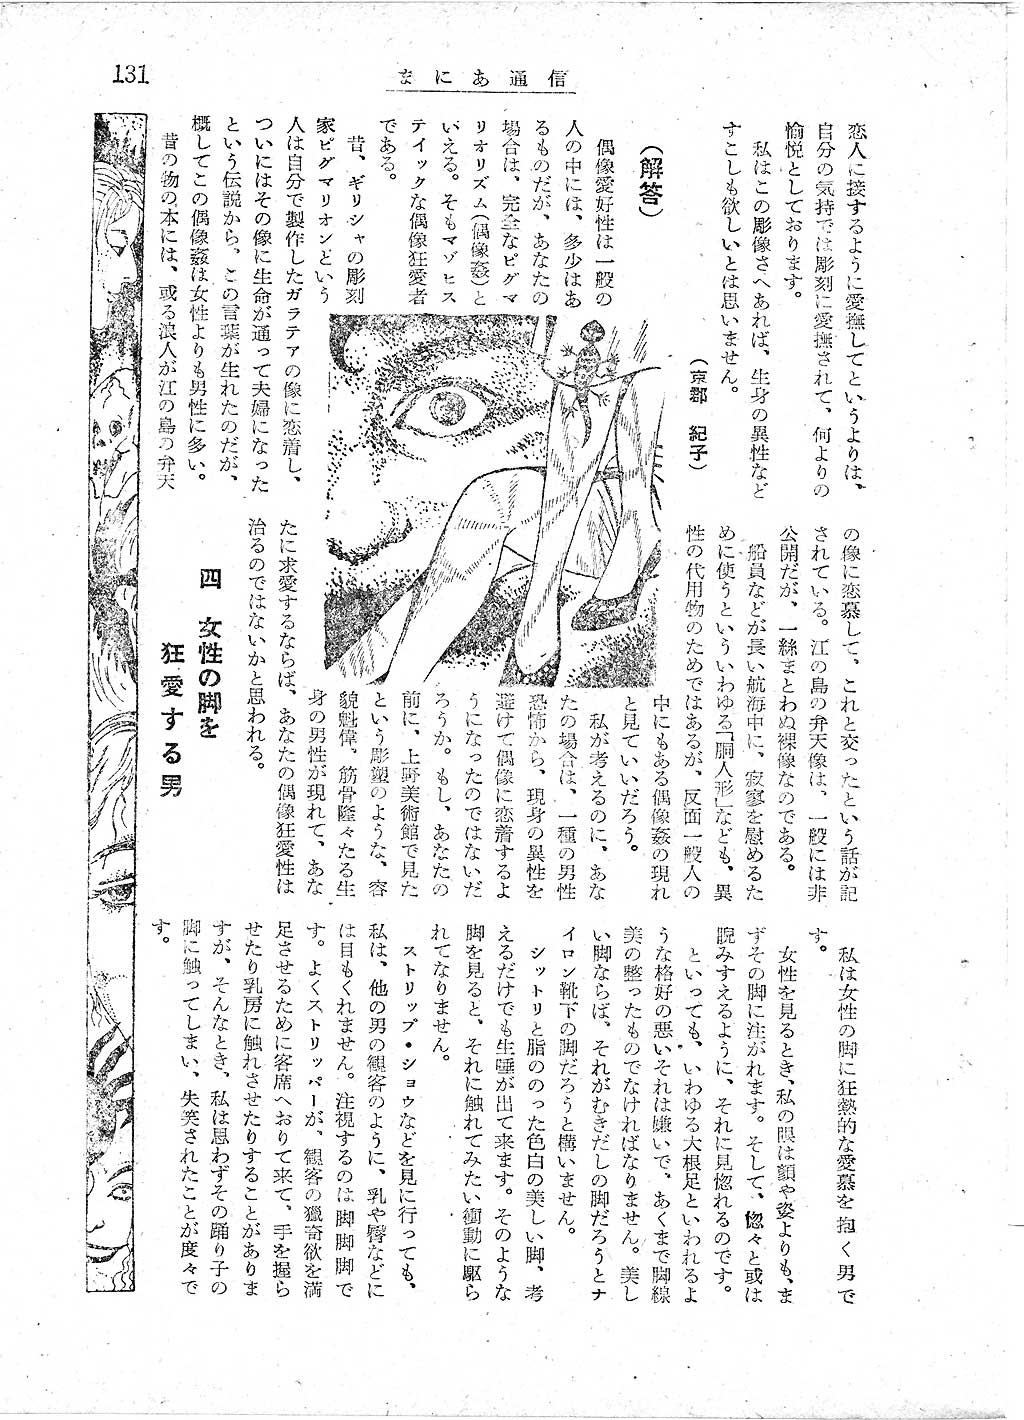 131
まにあ通信
恋人に接するように愛撫してというよりは、
自分の気持では彫刻に愛撫されて、何よりの
愉悦としております。
私はこの彫像さへあれば、生身の異性など
すこしも欲しいとは思いません。
（京都　紀子）
（解答）
偶像愛好性は一般の
人の中には、多少はあ
るものだが、あなたの
場合は、完全なピグマ
リオリズム（偶像姦）と
いえる。そもマゾヒス
テイックな偶像狂愛者
である。
昔、ギリシャの彫刻
家ピグマリオンという
人は自分で製作したガラテアの像に恋着し、
ついにはその像に生命が通って夫婦になった
という伝説から、この言葉が生れたのだが、
概してこの偶像姦は女性よりも男性に多い。
昔の物の本には、或る浪人が江の島の弁天
の像に恋慕して、これと交ったという話が記
されている。江の島の弁天像は、一般には非
公開だが、一絲まとわぬ裸像なのである。
船員などが長い航海中に、寂寥を慰めるた
めに使うといういわゆる「胴人形」なども、異
性の代用物のためではあるが、反面一般人の
中にもある偶像姦の現れ
と見ていいだろう。
私が考えるのに、あな
たの場合は、一種の男性
恐怖から、現身の異性を
避けて偶像に恋着するよ
うになったのではないだ
ろうか。もし、あなたの
前に、上野美術館で見た
という彫塑のような、容
貌魁偉、筋骨隆々たる生
身の男性が現れて、あな
たに求愛するならば、あなたの偶像狂愛性は
治るのではないかと思われる。
四　女性の脚を
狂愛する男
私は女性の脚に狂熱的な愛慕を抱く男で
す。
女性を見るとき、私の眼は顔や姿よりも、ま
ずその脚に注がれます。そして、惚々と或は
睨みすえるように、それに見惚れるのです。
といっても、いわゆる大根足といわれるよ
うな格好の悪いそれは嫌いで、あくまで脚線
美の整ったものでなければなりません。美し
い脚ならば、それがむきだしの脚だろうとナ
イロン靴下の脚だろうと構いません。
シットリと脂ののった色白の美しい脚、考
えるだけでも生唾が出て来ます。そのような
脚を見ると、それに触れてみたい衝動に駆ら
れてなりません。
ストリップ・ショウなどを見に行っても、
私は、他の男の観客のように、乳や臀などに
は目もくれません。注視するのは脚脚脚で
す。よくストリッパーが、観客の猟奇欲を満
足させるために客席へおりて来て、手を握ら
せたり乳房に触れさせたりすることがありま
すが、そんなとき、私は思わずその踊り子の
脚に触ってしまい、失笑されたことが度々で
す。